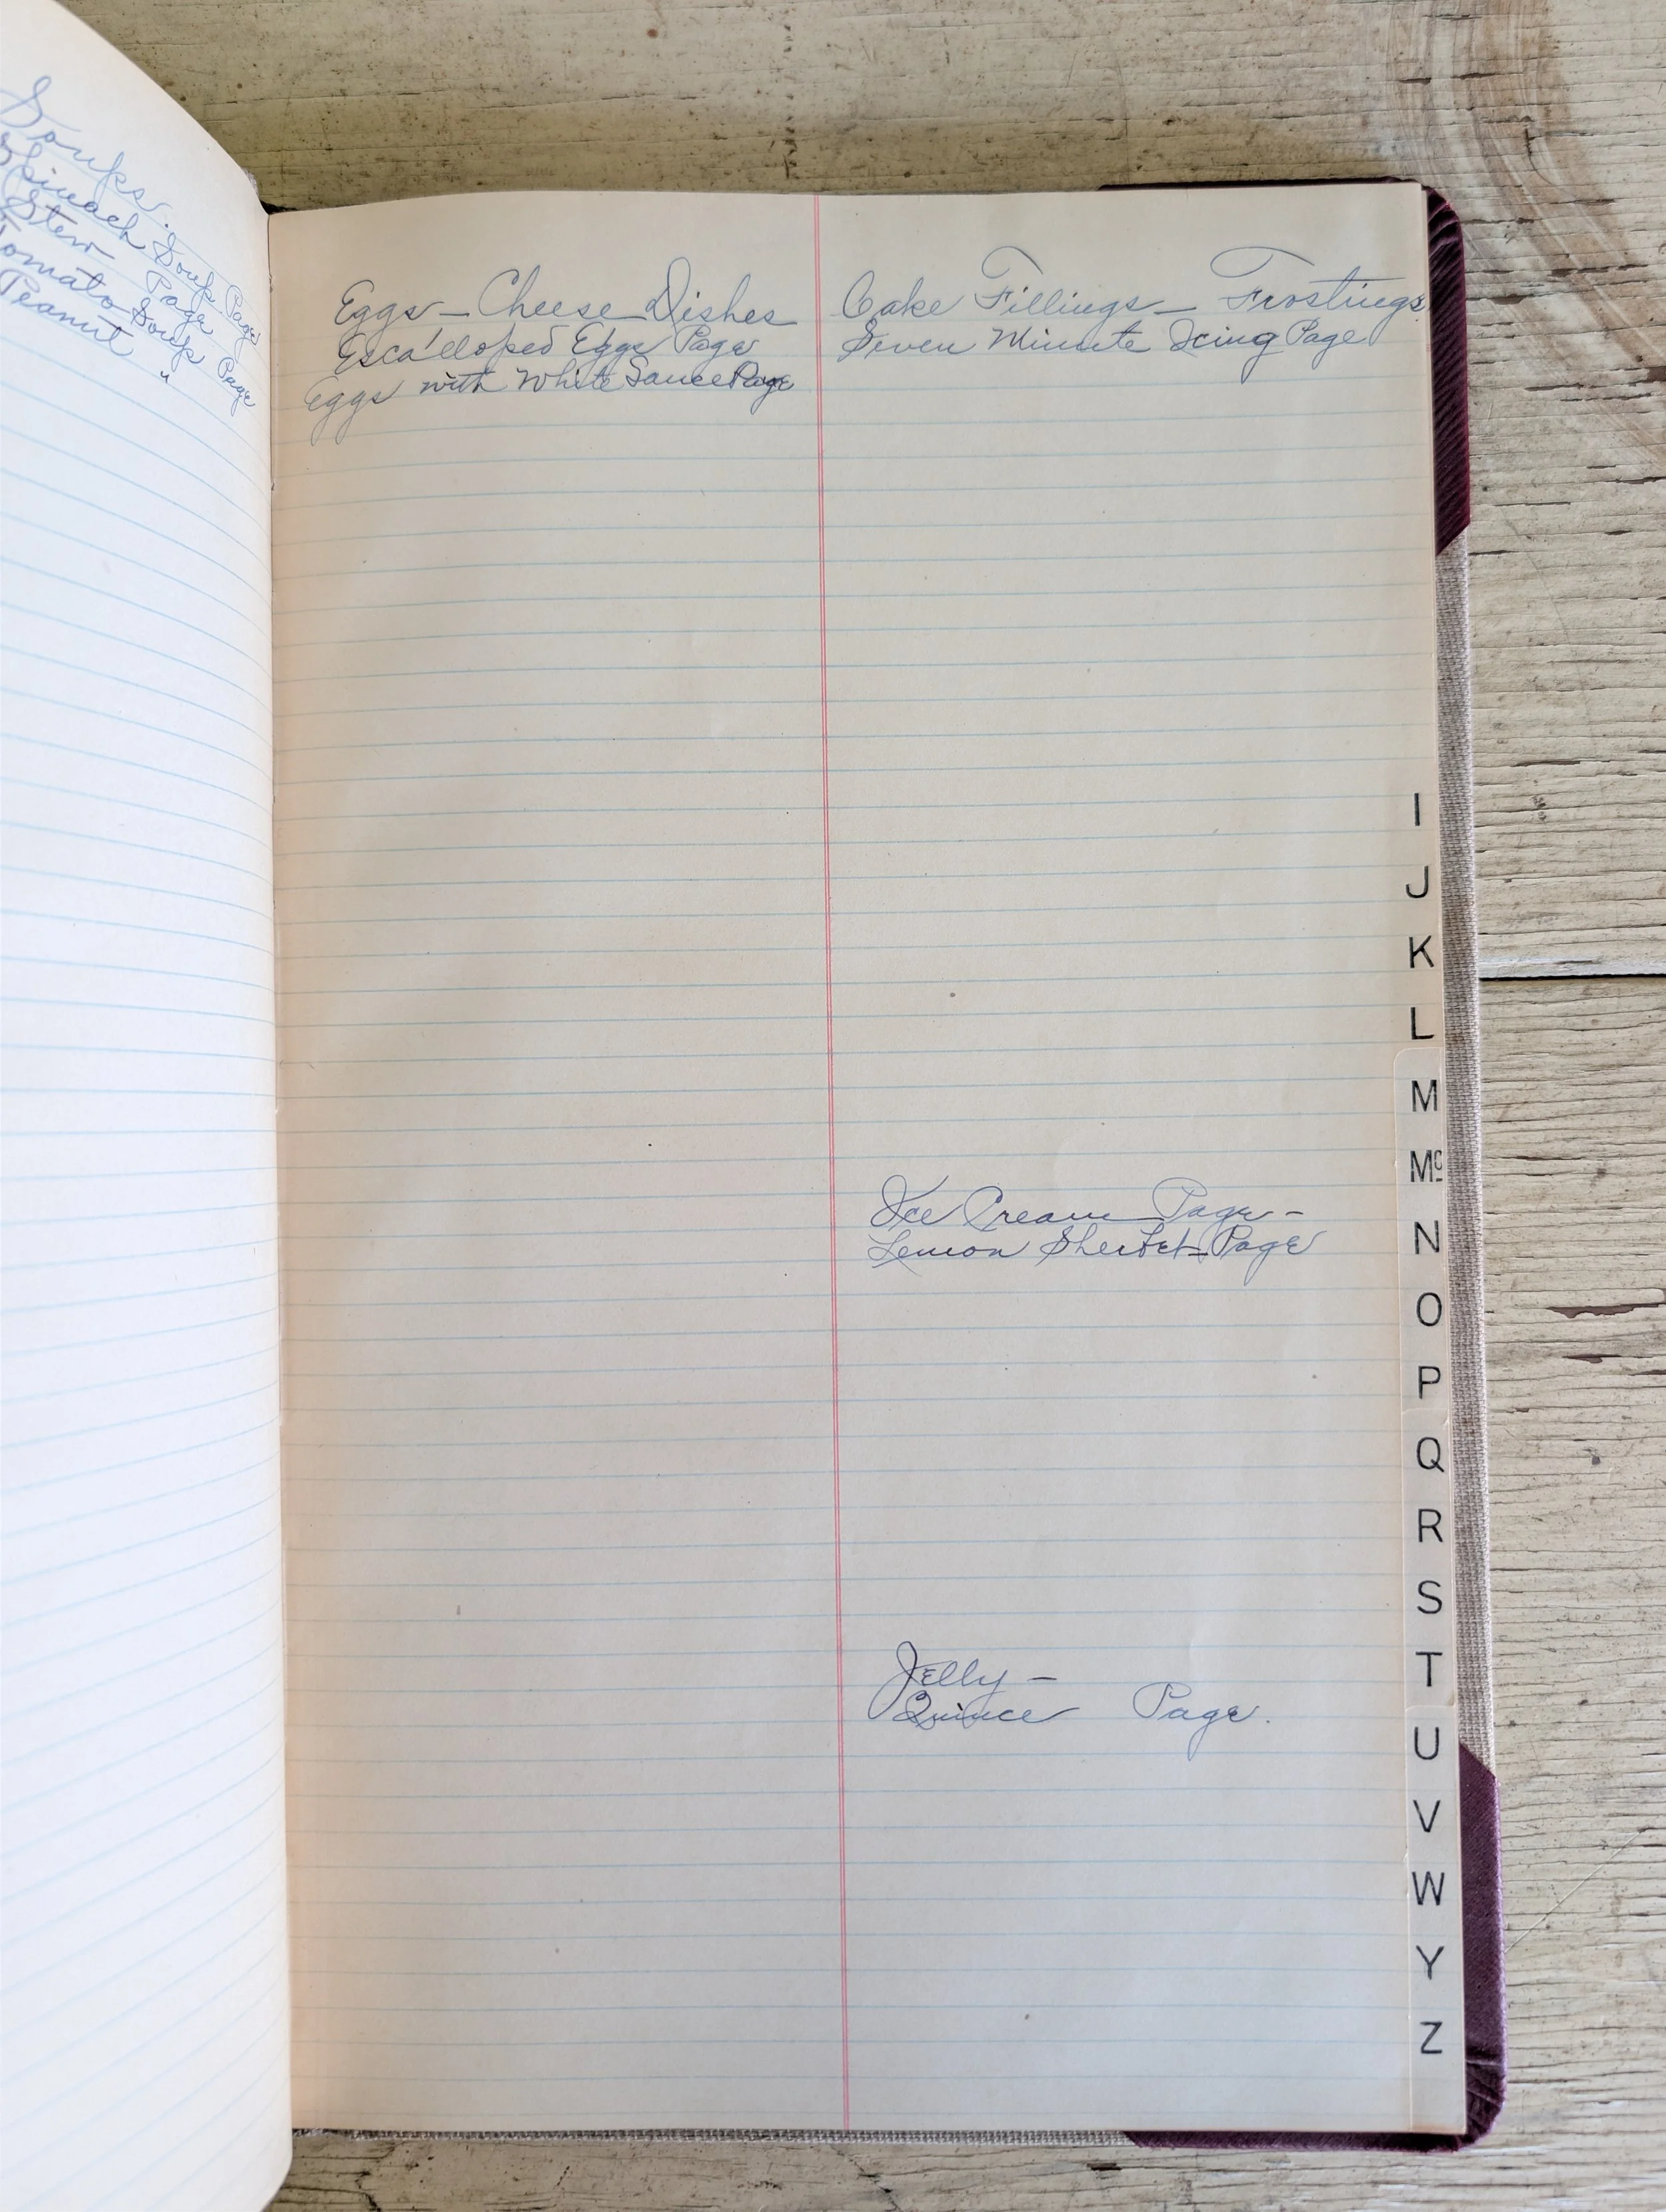 Soups.
Spinach Soup Page
Stew Page
Tomato Soup Page
Peanut "
Eggs – Cheese Dishes
Esca'lloped Eggs Page
Eggs with White Sauce Page
Cake Fillings – Frostings
Seven Minute Icing Page
Ice Cream Page –
Lemon Sherbet – Page
Jelly –
Quince Page.
I
J
K
L
M
Mc
N
O
P
Q
R
S
T
U
V
W
Y
Z